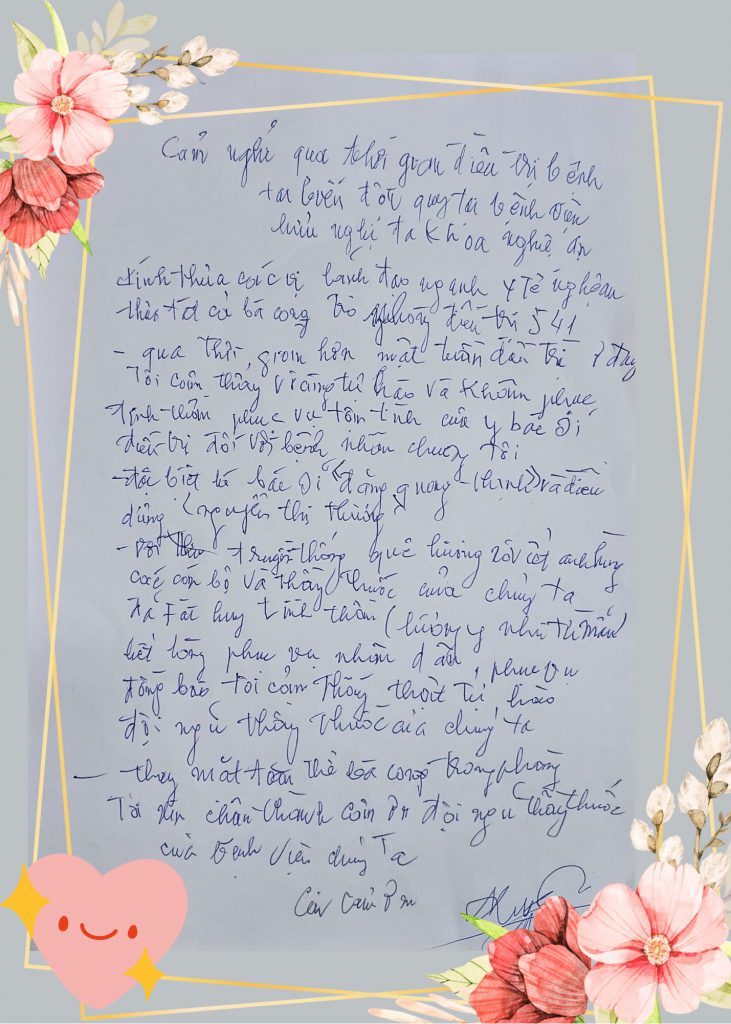 Cảm nghỉ qua thời gian điều trị bệnh
tai biến đột quỵ tại bệnh viện
hữu nghị đa khoa nghệ an
kính thưa các vị lảnh đạo ngành y tế nghệ an
thưa tất cả bà con phòng điều trị 541
- qua thời gian hơn một tuần điều trị ở đây
Tôi cảm thấy vô cùng tự hào và khâm phục
tinh thần phục vụ tận tình của y bác sĩ
điều trị đối với bệnh nhân chúng tôi
- đặc biệt là bác sĩ (đặng quang thịnh) và điều
dưỡng (nguyễn thị thương)
- với truyền thống quê hương anh hùng
các cán bộ và thầy thuốc của chúng ta
đã fát huy tinh thần (lương y như từ mẫu)
hết lòng phục vụ nhân dân, phục vụ
đồng bào tôi cảm thấy thật tự hào
đội ngủ thầy thuốc của chúng ta
- thay mặt toàn thể bà con trong phòng
Tôi xin chân thành cảm ơn đội ngu thầy thuốc
của bệnh viện chúng Ta
cảm ơn